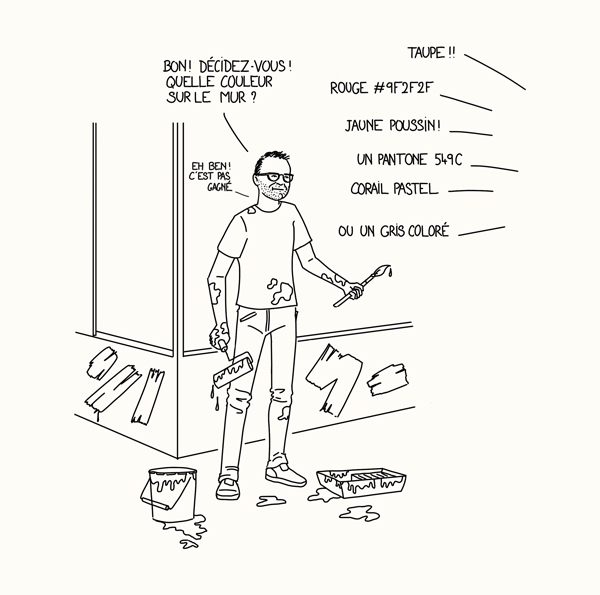 BON! DÉCIDEZ-VOUS!
QUELLE COULEUR
SUR LE MUR ?
EH BEN!
C'EST PAS
GAGNÉ
TAUPE !!
ROUGE #9F2F2F
JAUNE POUSSIN!
UN PANTONE 549C
CORAIL PASTEL
OU UN GRIS COLORÉ